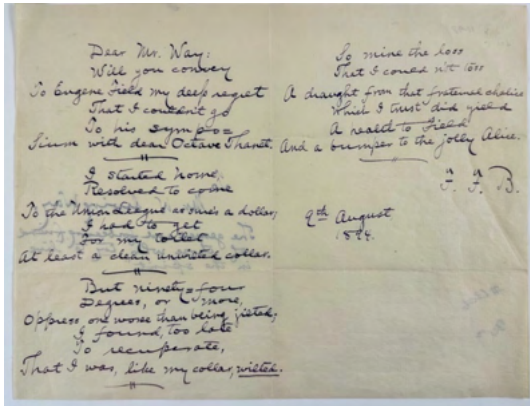 Dear Mr. Way:
Will you convey
To Eugene Field my deep regret
That I couldn't go
To his sympo=
Sium with dear Octave Thanet.
I started home,
Resolved to come
To the Union League as sure's a dollar;
I had to get
For my toilet
At least a clean unwilted collar.
But ninety=four
Degrees, or more,
Oppress one worse than being jilted;
I found, too late
To recuperate,
That I was, like my collar, wilted.
So mine the loss
That I could n't toss
A draught from that fraternal chalice
Which I trust did yield
A health to Field
And a bumper to the jolly Alice.
F. F. B.
9th August
1894.